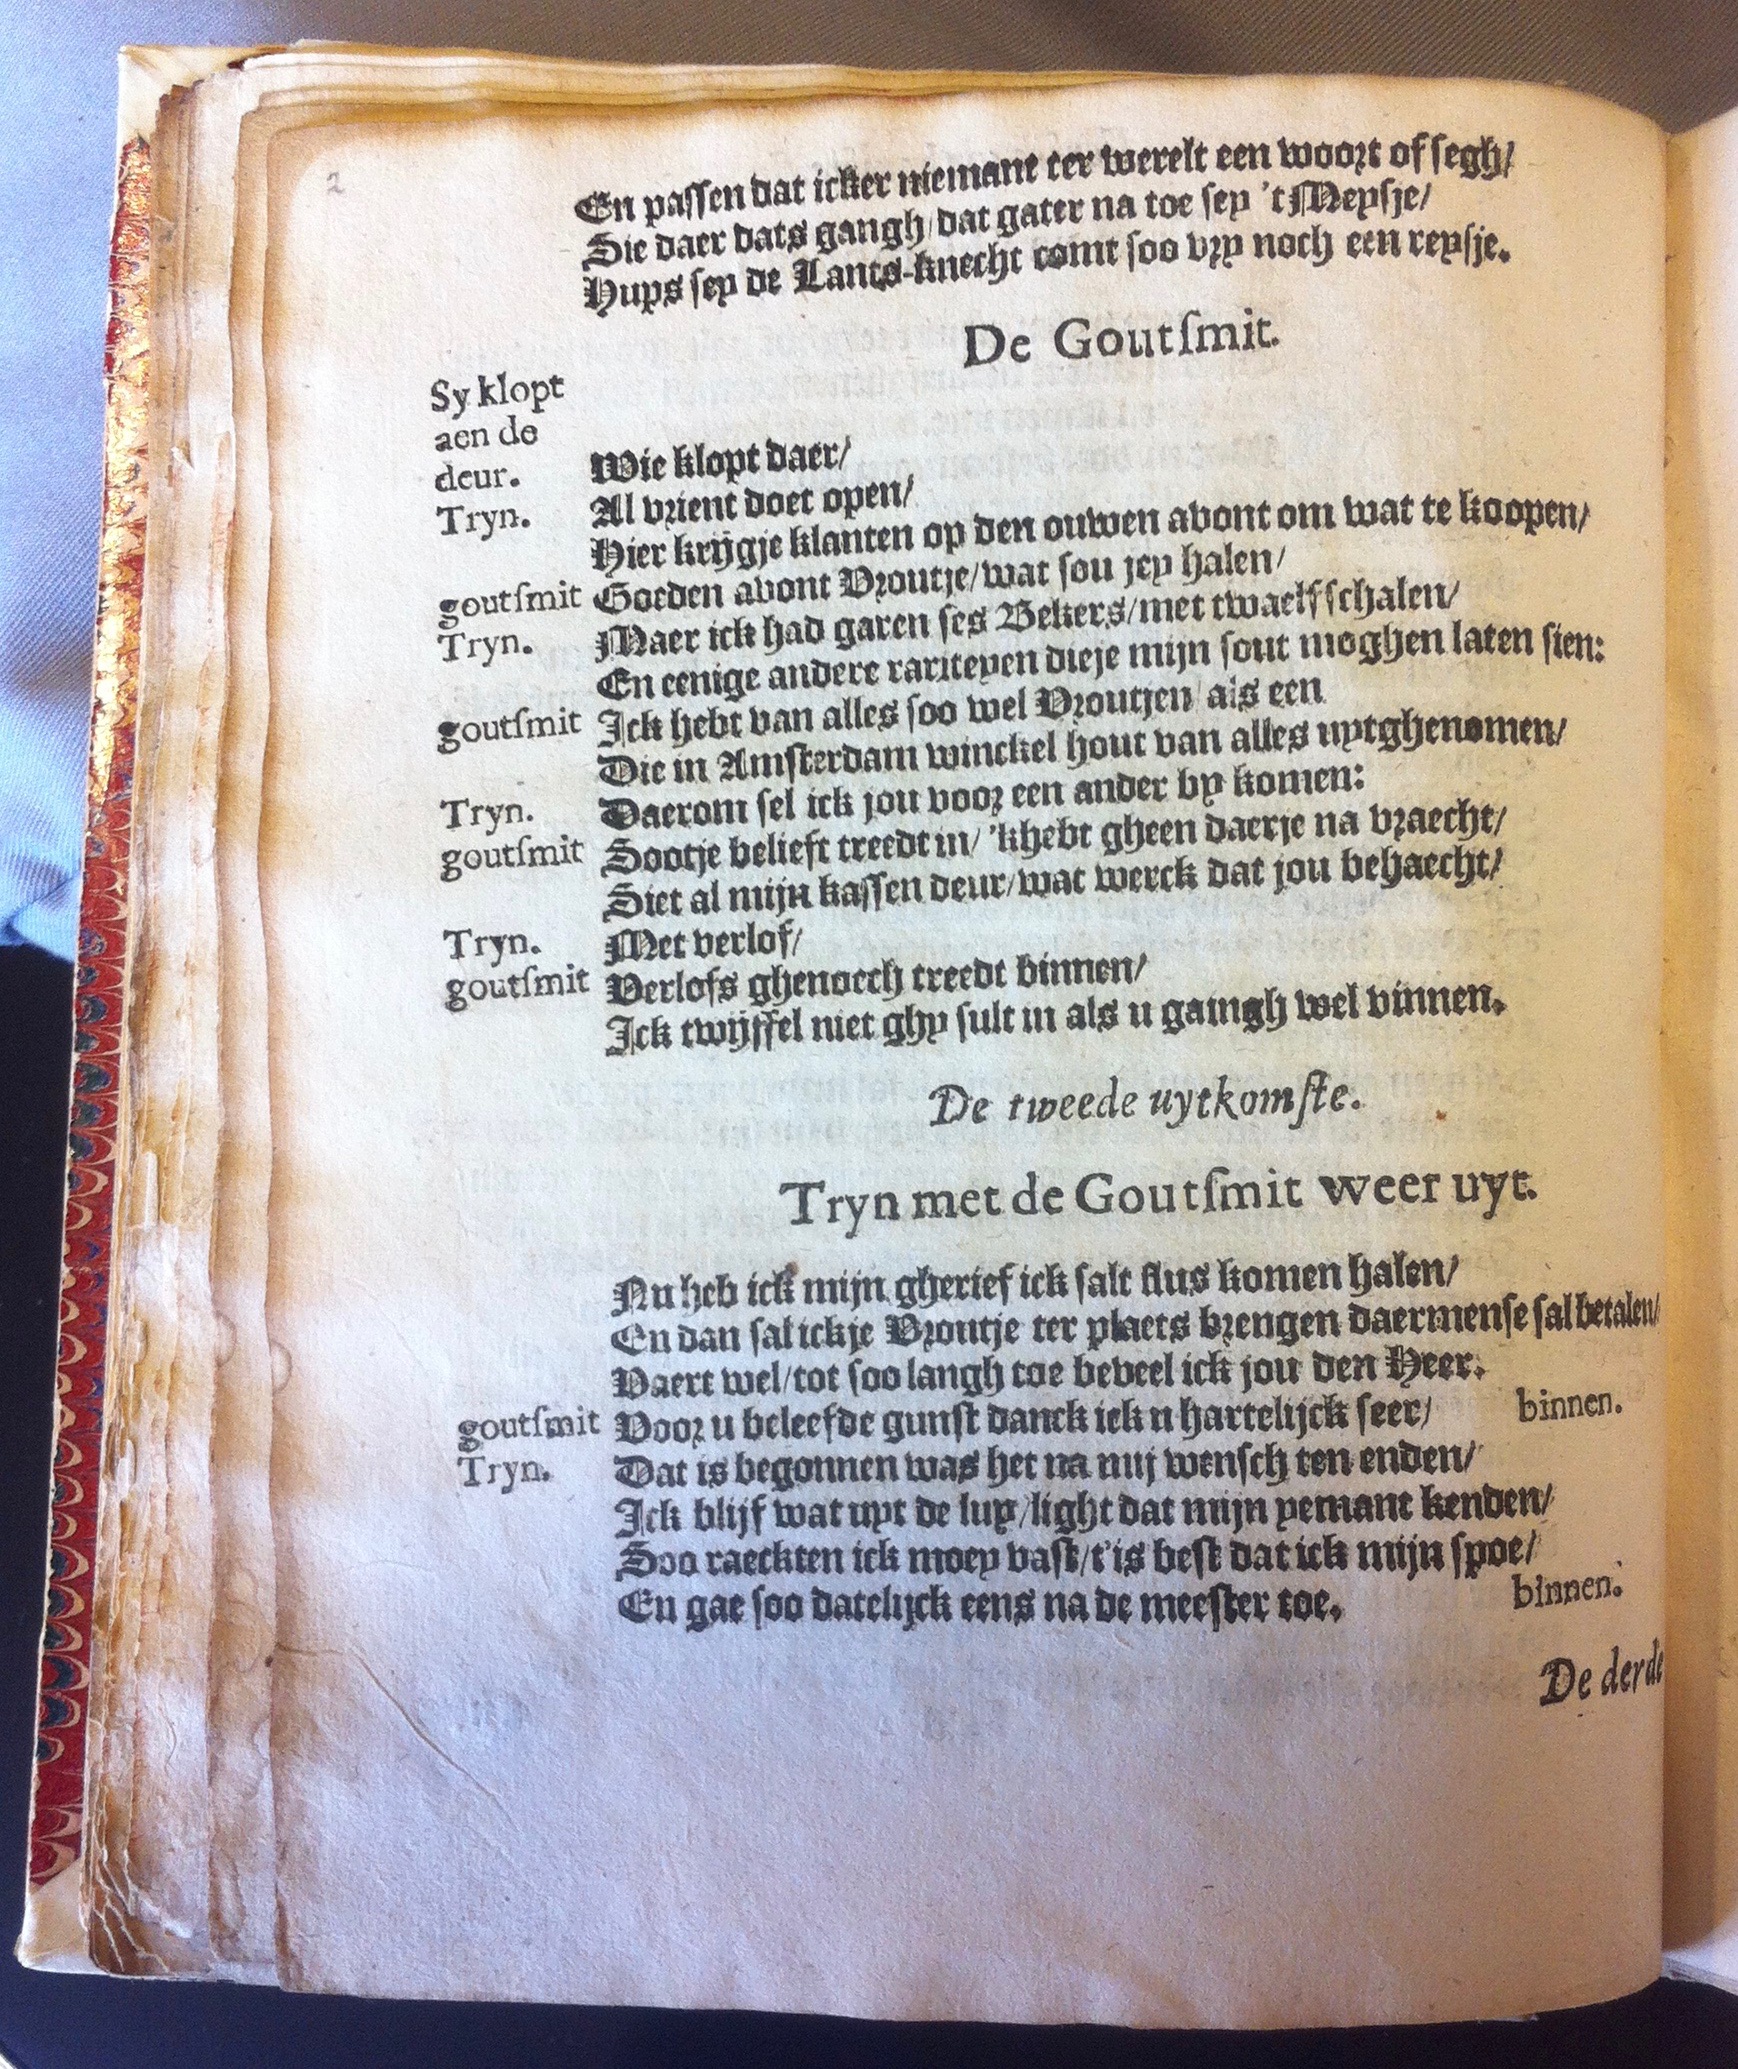 2
En passen dat icker niemant ter werelt een woort of segh/
Sie daer dats gangh/dat gater na toe sey 't Meysje/
Hups sey de Lants-knecht comt soo vry noch een reysje.
De Goutſmit.
Sy klopt
aen de
deur. Wie klopt daer/
Tryn. Al vrient doet open/
Hier krijgje klanten op den ouwen avont om wat te koopen/
goutſmit Goeden avont Vroutje/wat sou jey halen/
Tryn. Maer ick had garen ses Bekers/met twaelf schalen/
En eenige andere rariteyen dieje mijn sout moghen laten sien:
goutſmit Ick hebt van alles soo wel Vroutjen/als een
Die in Amsterdam winckel hout van alles uytghenomen/
Tryn. Daerom sel ick jou voor een ander by komen:
goutſmit Sootje belieft treedt in/ 'khebt gheen daerje na vraecht/
Siet al mijn kassen deur/wat werck dat jou behaecht/
Tryn. Met verlof/
goutſmit Verlofs ghenoech treedt binnen/
Ick twijffel niet ghy sult in als u gaingh wel vinnen.
De tweede uytkomſte.
Tryn met de Goutſmit weer uyt.
Nu heb ick mijn gherief ick salt flus komen halen/
En dan sal ickje Vroutje ter plaets brengen daermense sal betalen/
Vaert wel/tot soo langh toe beveel ick jou den Heer.
goutſmit Voor u beleefde gunst danck ick u hartelijck seer/ binnen.
Tryn. Dat is begonnen was het na mij wensch ten enden/
Ick blijf wat uyt de luy/light dat mijn yemant kenden/
Soo raeckten ick moey vast/t'is best dat ick mijn spoe/
En gae soo datelijck eens na de meester toe. binnen.
De derde